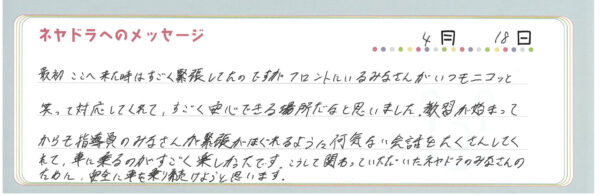 ネヤドラへのメッセージ
4月 18日
最初ここへ来た時はすごく緊張してたのですが フロントにいるみなさんがいつもニコッと
笑って対応してくれて、すごく安心できる場所だなと思いました。教習が始まって
からも指導員のみなさんが緊張がほぐれるように何気ない会話をたくさんしてく
れて、車に乗るのがすごく楽しかったです。こうして関わっていただいたネヤドラのみなさんの
ために、安全に車を乗り続けようと思います。